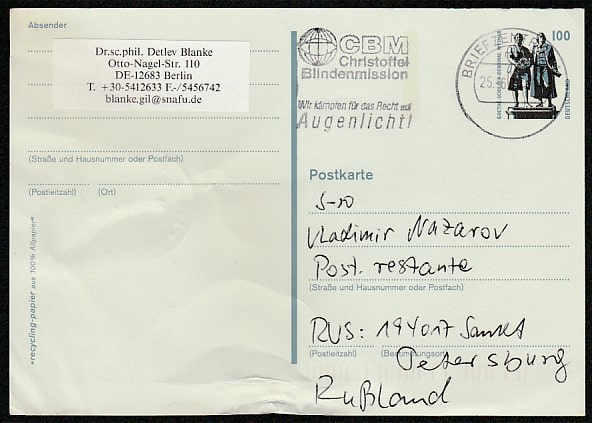 Absender
Dr.sc.phil. Detlev Blanke
Otto-Nagel-Str. 110
DE-12683 Berlin
T. +30-5412633 F.-/5456742
blanke.gil@snafu.de
(Straße und Hausnummer oder Postfach)
(Postleitzahl) (Ort)
"recycling-papier aus 100% Altpapier"
CBM
Christoffel
Blindenmission
Wir kämpfen für das Recht auf
Augenlicht!
BRIEFZENTRUM
25.
100
GOETHE-SCHILLER-DENKMAL WEIMAR
DEUTSCHLAND
Postkarte
S-ro
Vladimir Nazarov
Post. restante
(Straße und Hausnummer oder Postfach)
RUS: 194017 Sankt
(Postleitzahl) (Bestimmungsort)
Petersburg
Rußland